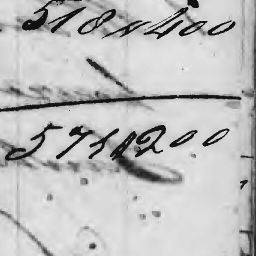 518$400
571$200